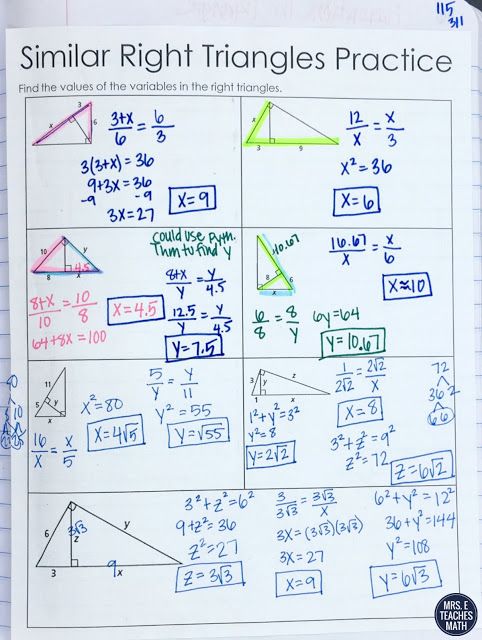 115
311
Similar Right Triangles Practice
Find the values of the variables in the right triangles.
3
x
6
3+x/6 = 6/3
3(3+x) = 36
9+3x = 36
-9 -9
3x = 27
x = 9
x
3
9
12/x = x/3
x² = 36
x = 6
10
y
x
8
4.5
could use Pyth.
Thm to find y
8+x/10 = 10/8
64+8x = 100
x = 4.5
8+x/y = y/4.5
12.5/y = y/4.5
y = 7.5
10.67
8
6
x
16.67/x = x/6
x ≈ 10
6/8 = 8/y
6y = 64
y = 10.67
11
5
y
x
16/x = x/5
x² = 80
x = 4√5
5/y = y/11
y² = 55
y = √55
3
y
z
1
x
1² + y² = 3²
y² = 8
y = 2√2
1/2√2 = 2√2/x
x = 8
3² + z² = 9²
z² = 72
z = 6√2
72
36 2
6 6
6
3√3
z
y
3
9
x
3² + z² = 6²
9 + z² = 36
z² = 27
z = 3√3
3/3√3 = 3√3/x
3x = (3√3)(3√3)
3x = 27
x = 9
6² + y² = 12²
36 + y² = 144
y² = 108
y = 6√3
MRS. E
TEACHES
MATH